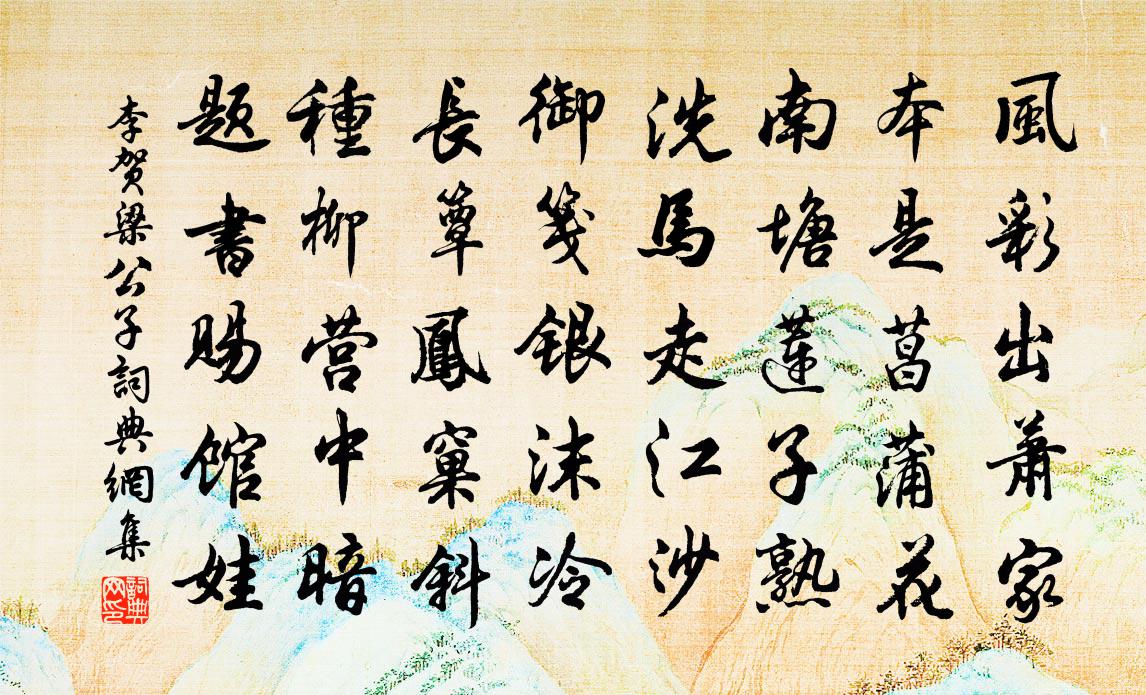 風彩出萧家
本是菖蒲花
南塘莲子熟
洗馬走江沙
御笺銀沫冷
長簟鳳窠斜
種柳营中暗
题書赐馆娃
李贺梁公子詞典網集
詞典网印